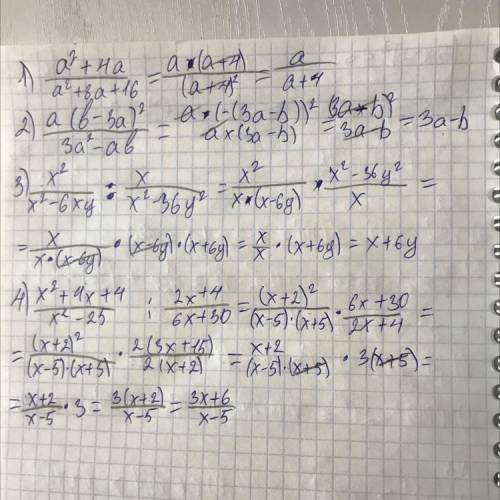 1) (a²+4a)/(a²+8a+16) = (a·(a+4))/(a+4)² = a/(a+4)
2) (a(b-3a)²)/(3a²-ab) = (a·(-(3a-b))²)/(a×(3a-b)) = (3a-b)²/(3a-b) = 3a-b
3) x²/(x²-6xy) : x/(x²-36y²) = x²/(x·(x-6y)) · (x²-36y²)/x =
= x/(x·(x-6y)) · (x-6y)·(x+6y) = x/x · (x+6y) = x+6y
4) (x²+4x+4)/(x²-25) : (2x+4)/(6x+30) = (x+2)²/((x-5)·(x+5)) · (6x+30)/(2x+4) =
= (x+2)²/((x-5)·(x+5)) · 2(3x+15)/2(x+2) = (x+2)/((x-5)·(x+5)) · 3(x+5) =
= (x+2)/(x-5) · 3 = 3(x+2)/(x-5) = (3x+6)/(x-5)